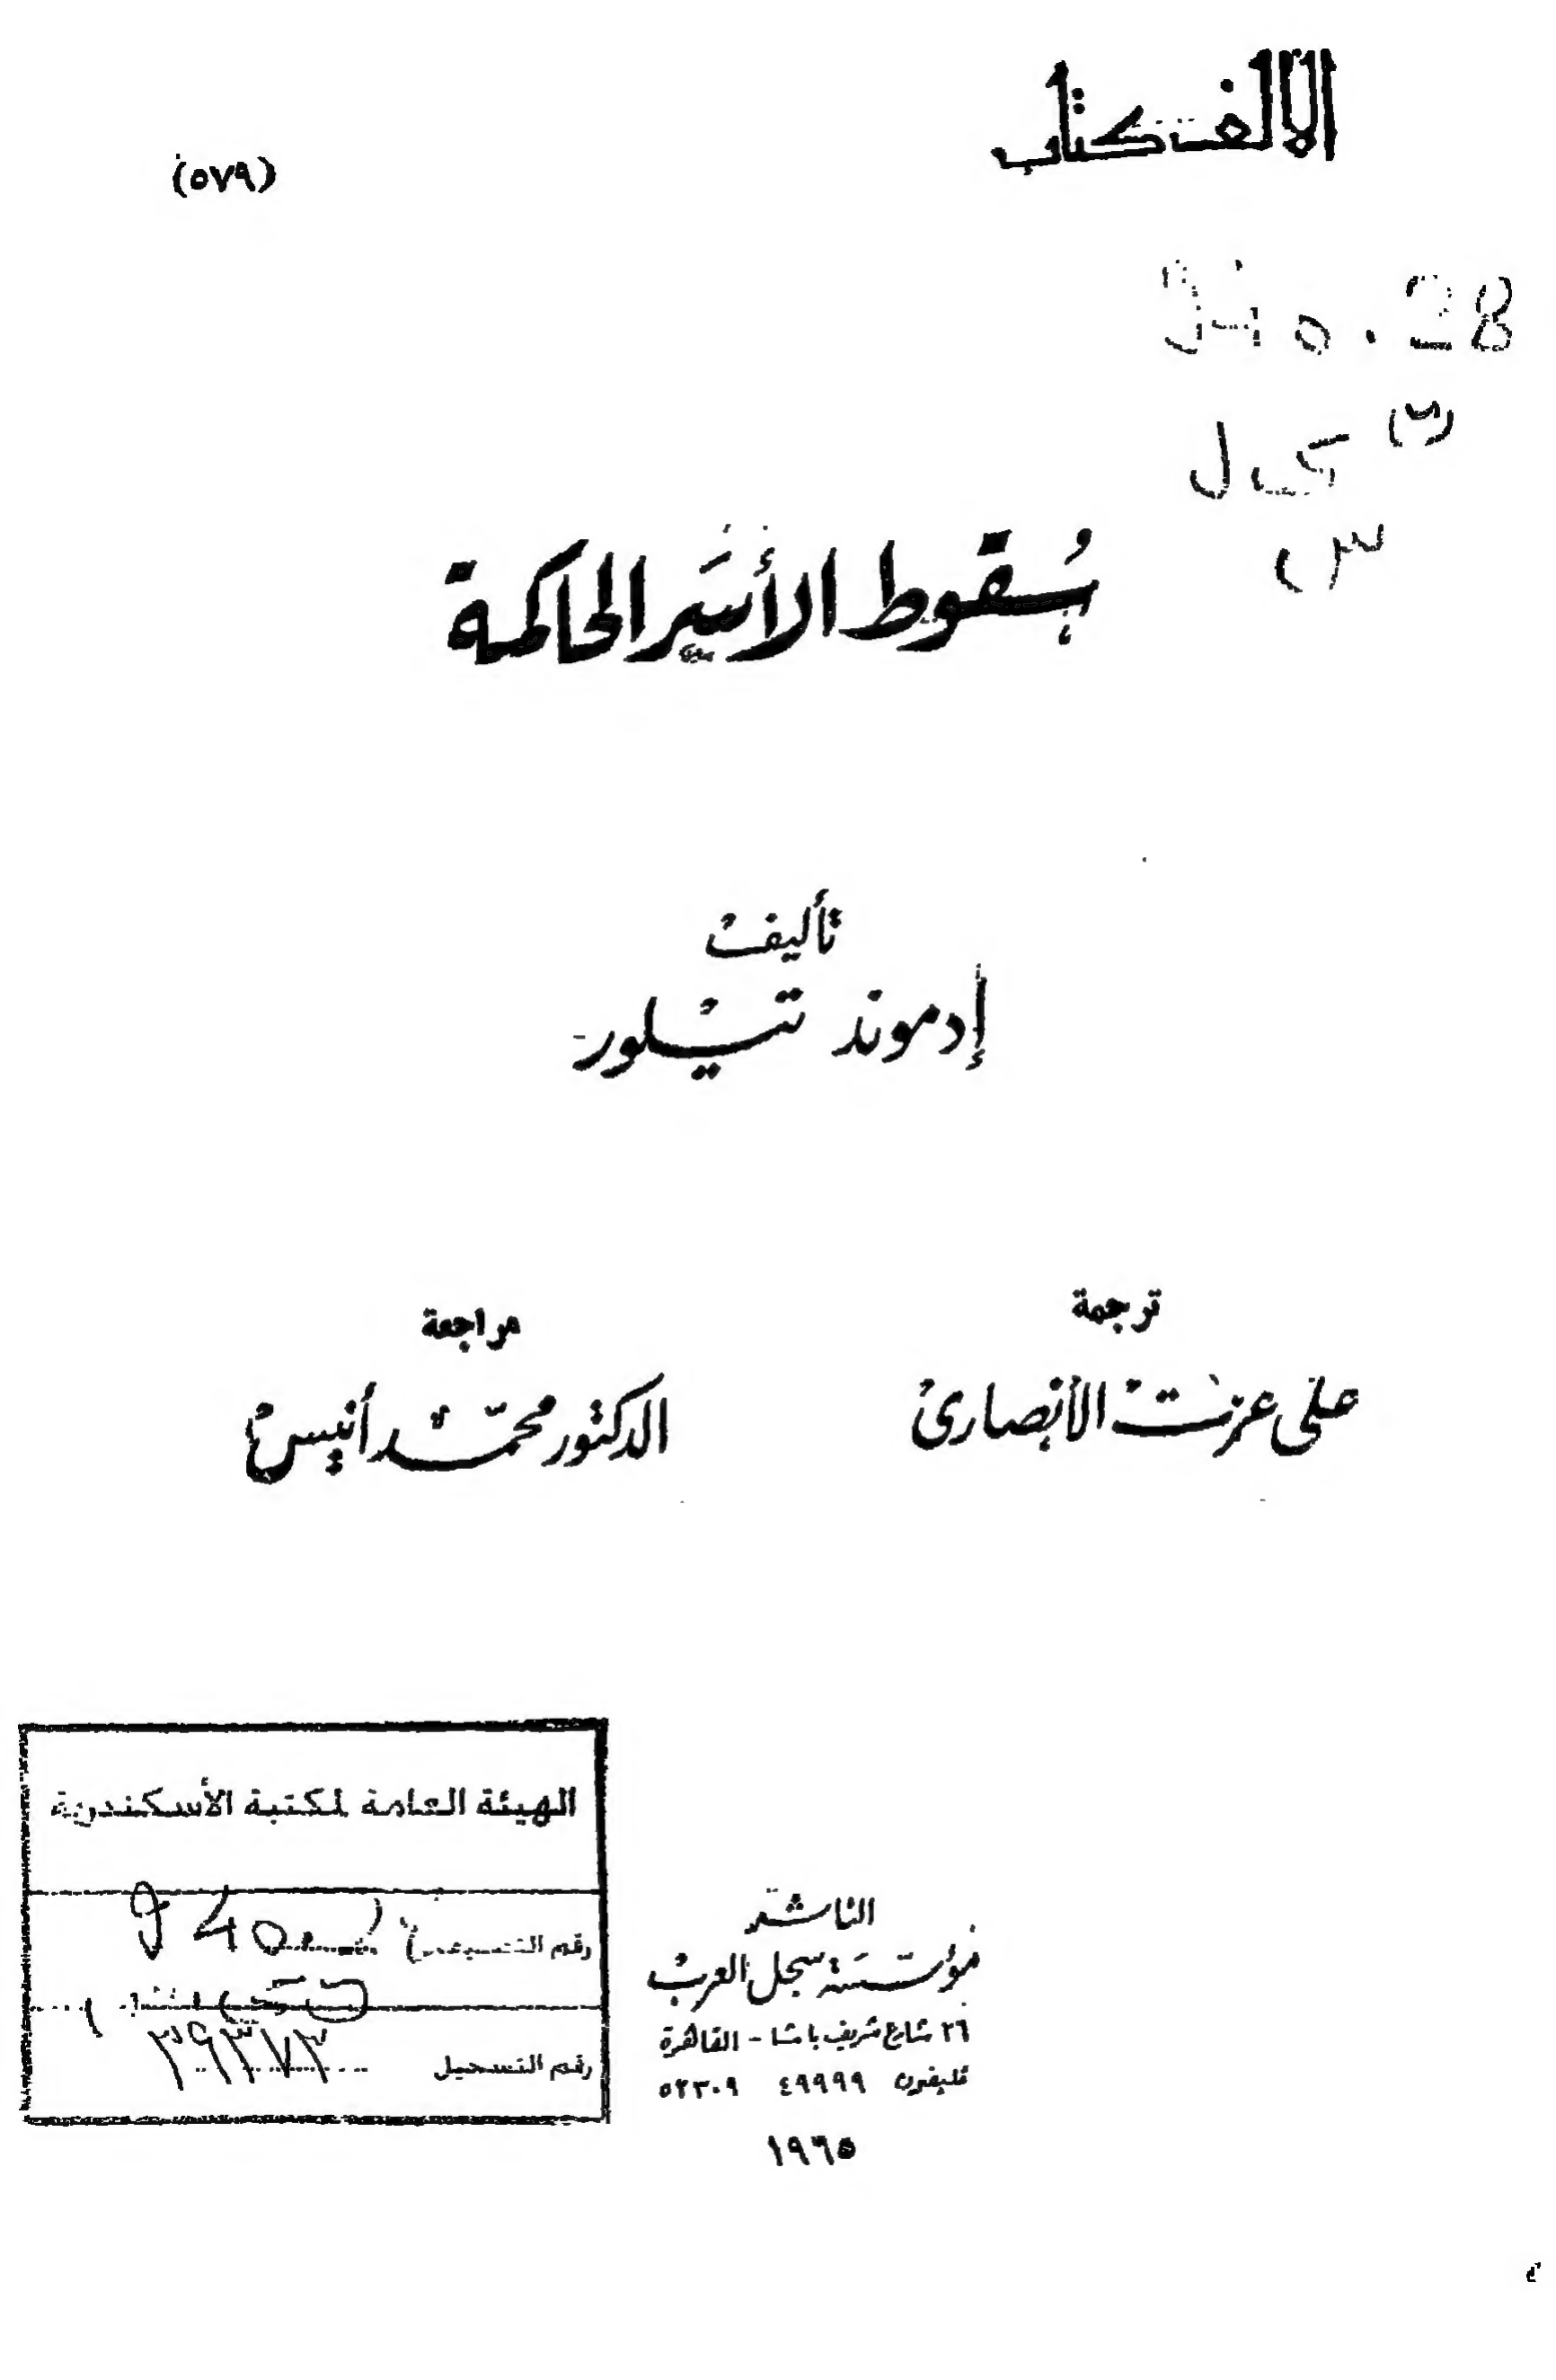 الألف كتاب
(٥٧٩)
940.28
سقوط الأسر الحاكمة
تأليف
إدموند تيلور
ترجمة
على عزت الأنصارى
مراجعة
الدكتور محمد أنيس
الهيئة العامة لمكتبة الأسكندرية
رقم التصنيف 940
رقم التسجيل ٣٩٣٧٣
الناشر
مؤسسة سجل العرب
٢٦ شارع شريف باشا - القاهرة
تليفون ٤٩٩٩٩ ٥٢٣٠٩
١٩٦٥